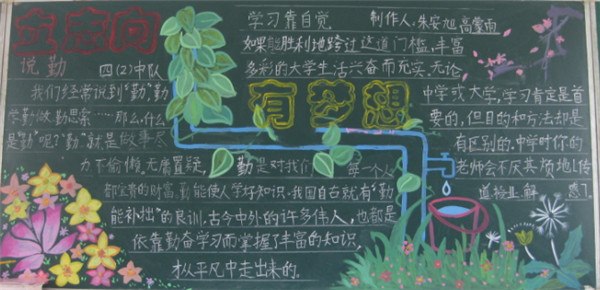 立志向
说勤
四(2)中队
我们经常说到“勤”勤
学勤做勤思索……那么,什么
是“勤”呢?“勤”就是做事尽
力不偷懒,无庸置疑,勤是对我们每一个人
都宝贵的财富,勤能使人学好知识。我国自古就有“勤
能补拙”的良训,古今中外的许多伟人,也都是
依靠勤奋学习而掌握了丰富的知识,
才从平凡中走出来的。
有梦想
学习靠自觉
制作人:朱安旭 高蒙雨
如果能胜利地跨过这道门槛,丰富
多彩的大学生活兴奋而充实,无论
中学或大学,学习肯定是首
要的,但目的和方法却是
有区别的。中学时你的
老师会不厌其烦地传
道授业、解惑了